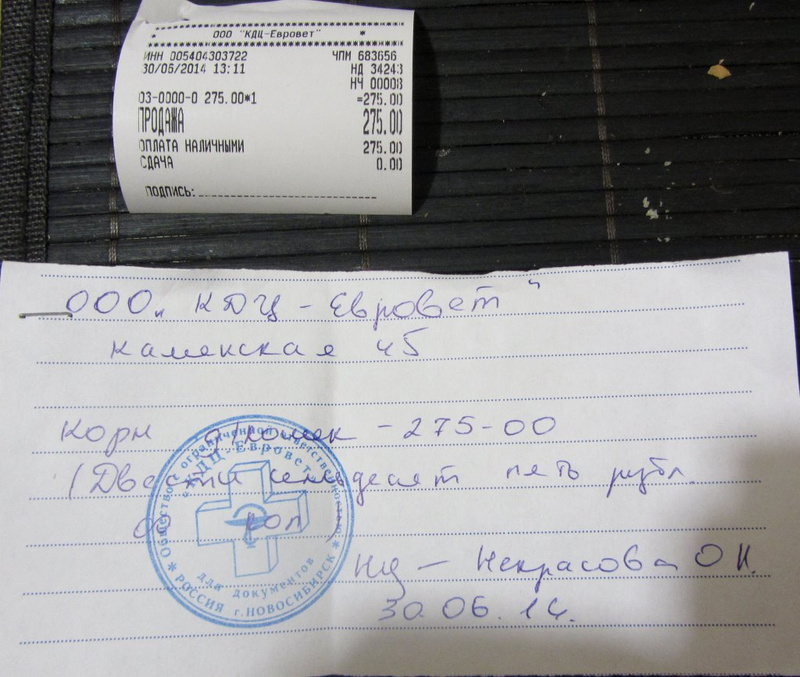 ООО "КДЦ-Евровет" *
ИНН 005404303722 ЧПМ 683656
30/06/2014 13:11 НД 34243
НЧ 00008
03-0000-0 275.00*1 =275.00
ПРОДАЖА 275.00
ОПЛАТА НАЛИЧНЫМИ 275.00
СДАЧА 0.00
ПОДПИСЬ:
ООО „КДЦ - Евровет"
Каменская 45
Корм д/кошек - 275-00
(Двести семьдесят пять рубл.
00 коп)
Некрасова О Н.
30.06.14.
Общество с ограниченной ответственностью
"КДЦ-Евровет"
для документов
* РОССИЯ г.НОВОСИБИРСК *